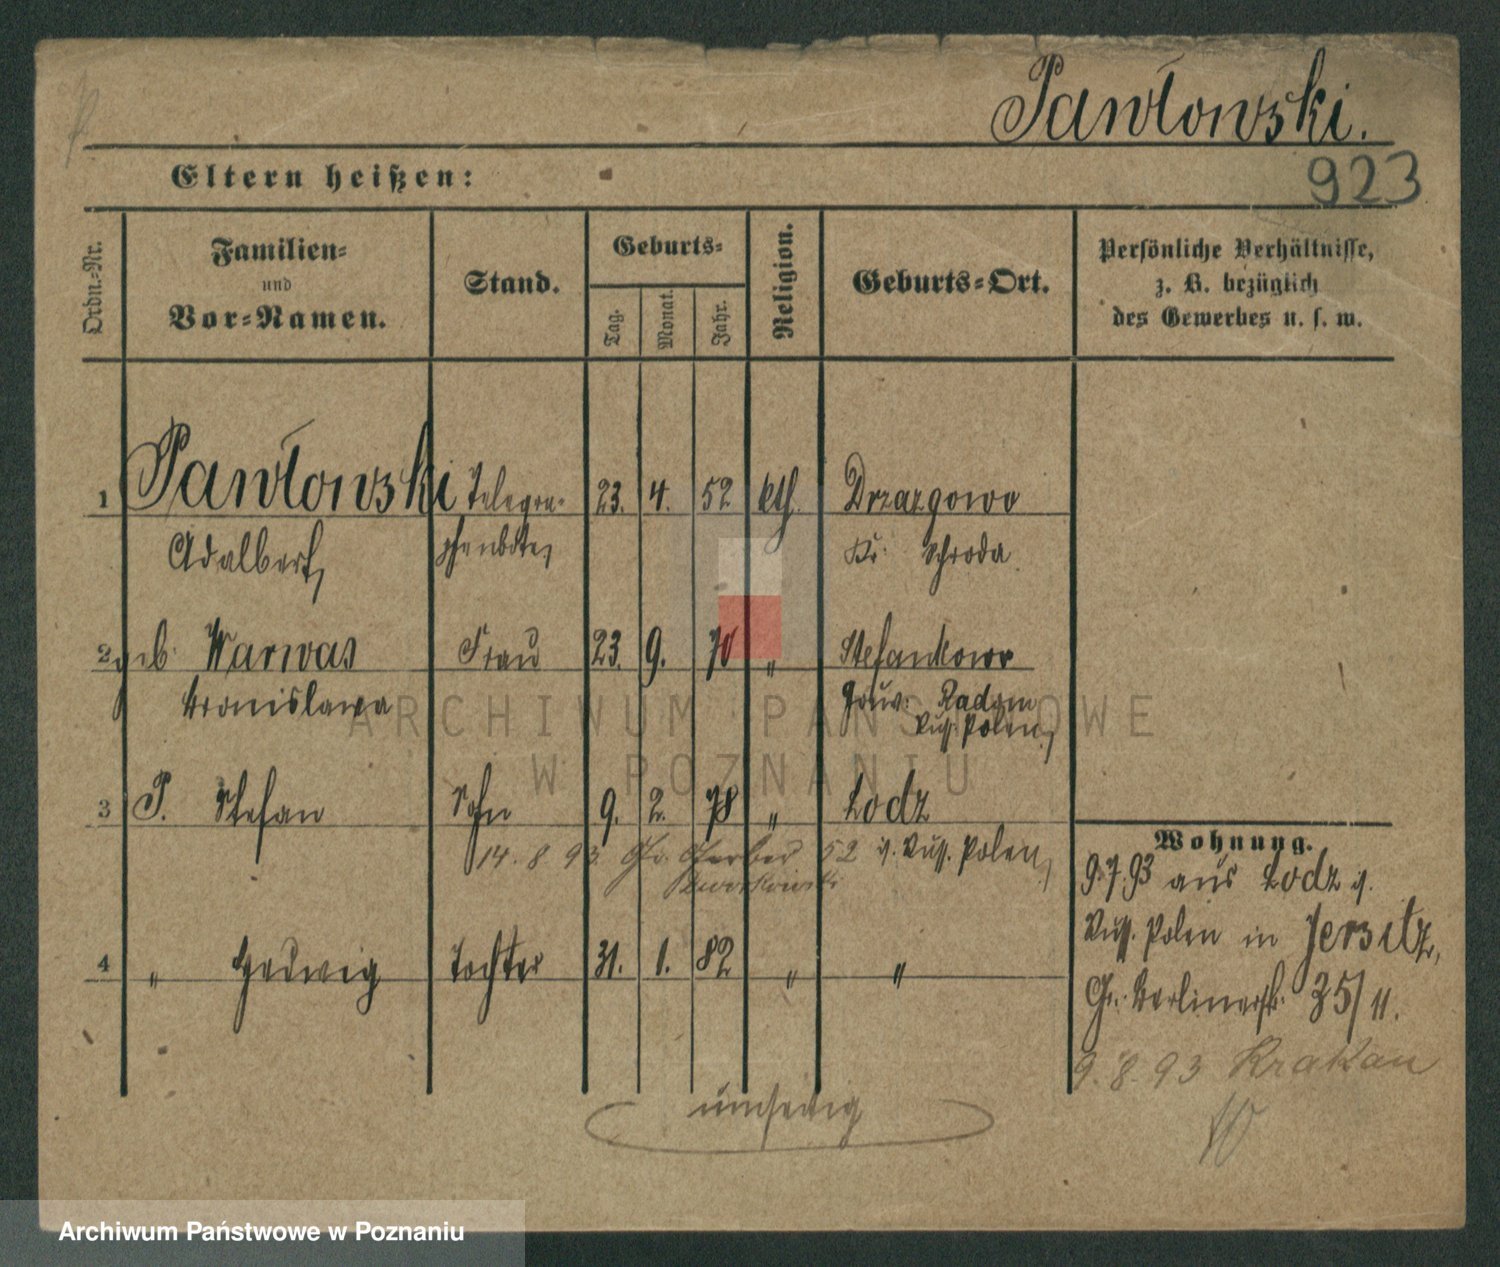 Pawłowski.
923
Eltern heißen:
Ordn.-Nr.
Familien-
und
Vor-Namen.
Stand.
Geburts-
Tag.
Monat.
Jahr.
Religion.
Geburts-Ort.
Persönliche Verhältnisse,
z. B. bezüglich
des Gewerbes u. s. w.
1 Pawłowski Telegra- 23. 4. 52 kth. Drzazgowo
Adalbert, phenbote, Kr. Schroda.
2 geb. Warwas Frau 23. 9. 70 " Stefankowo
Bronislawa Gouv. Radom
Russ. Polen,
3 P. Stefan Sohn 9. 2. 78 " Lodz
14. 8 93. Gr. Gerber 52 i. Russ. Polen,
4 " Hedwig Tochter 31. 1. 82 " "
Wohnung.
9.7.93 aus Lodz i.
Russ. Polen in Jersitz,
Gr. Berlinerstr. 35/11.
9. 8. 93 Krakau
umseitig
ARCHIWUM PAŃSTWOWE
W POZNANIU
Archiwum Państwowe w Poznaniu